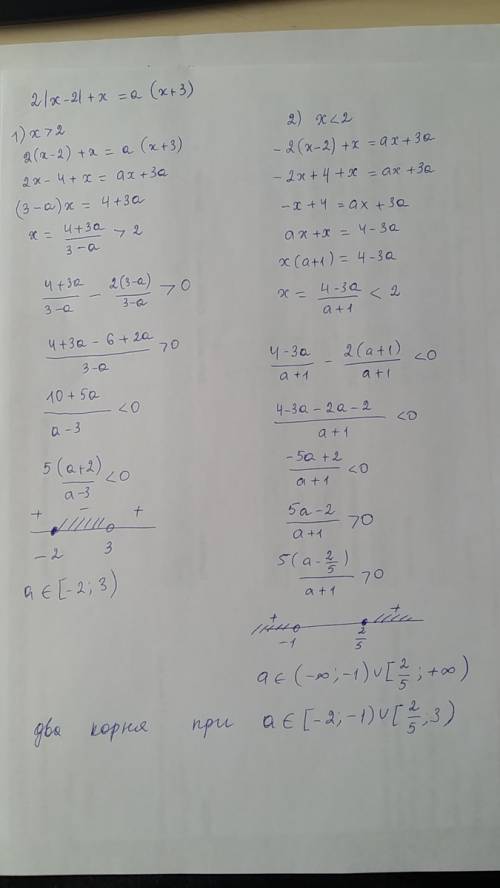 2|x-2|+x = a (x+3)
1) x > 2
2(x-2) + x = a (x+3)
2x - 4 + x = ax + 3a
(3-a)x = 4+3a
x = \frac{4+3a}{3-a} > 2
\frac{4+3a}{3-a} - \frac{2(3-a)}{3-a} > 0
\frac{4+3a-6+2a}{3-a} > 0
\frac{10+5a}{a-3} < 0
\frac{5(a+2)}{a-3} < 0
+ - +
-2 3
a ∈ [-2; 3)
2) x < 2
-2(x-2) + x = ax + 3a
-2x + 4 + x = ax + 3a
-x + 4 = ax + 3a
ax + x = 4 - 3a
x(a+1) = 4 - 3a
x = \frac{4-3a}{a+1} < 2
\frac{4-3a}{a+1} - \frac{2(a+1)}{a+1} < 0
\frac{4-3a-2a-2}{a+1} < 0
\frac{-5a+2}{a+1} < 0
\frac{5a-2}{a+1} > 0
\frac{5(a-\frac{2}{5})}{a+1} > 0
+ +
-1 \frac{2}{5}
a ∈ (-∞; -1) ∪ [\frac{2}{5}; +∞)
два корня при a ∈ [-2; -1) ∪ [\frac{2}{5}; 3)